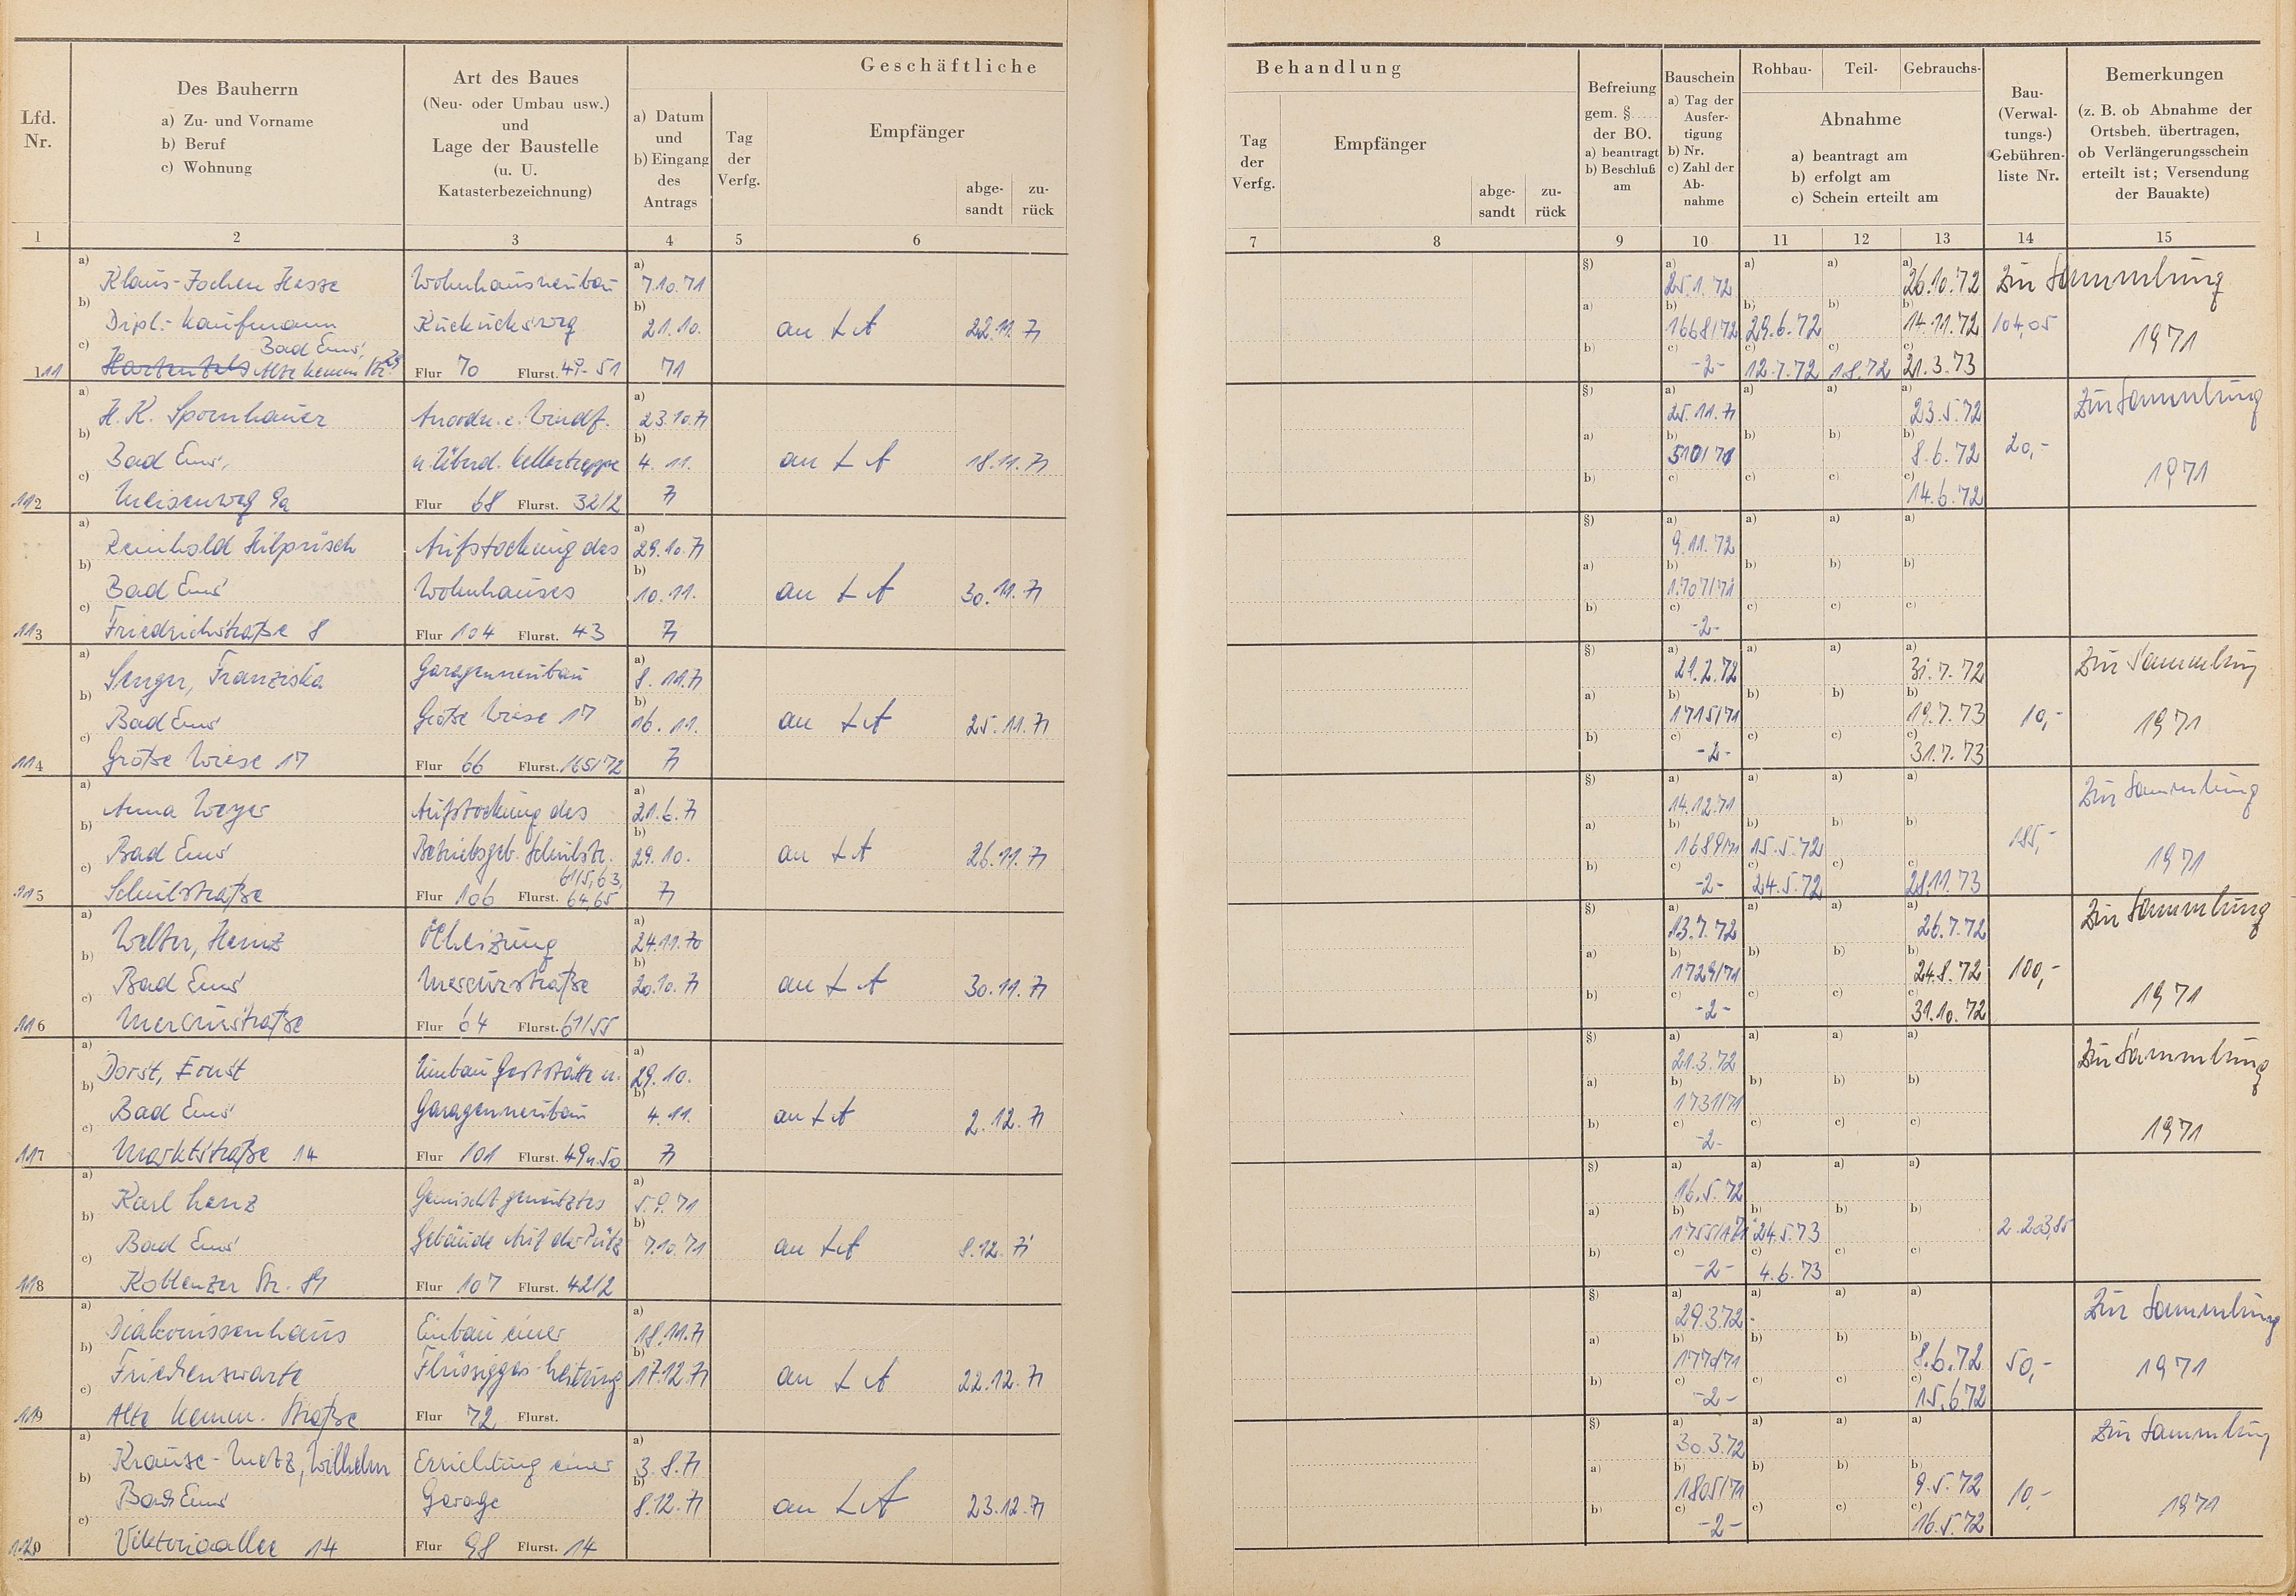 Geschäftliche
Behandlung
Lfd. Nr.
Des Bauherrn
a) Zu- und Vorname
b) Beruf
c) Wohnung
Art des Baues
(Neu- oder Umbau usw.)
und
Lage der Baustelle
(u. U.
Katasterbezeichnung)
a) Datum
und
b) Eingang
des
Antrags
Tag
der
Verfg.
Empfänger
abge-
sandt
zu-
rück
Tag
der
Verfg.
Empfänger
abge-
sandt
zu-
rück
Befreiung
gem. §
der BO.
a) beantragt
b) Beschluß
am
Bauschein
a) Tag der
Ausfer-
tigung
b) Nr.
c) Zahl der
Ab-
nahme
Rohbau-
Teil-
Gebrauchs-
Abnahme
a) beantragt am
b) erfolgt am
c) Schein erteilt am
Bau-
(Verwal-
tungs-)
Gebühren-
liste Nr.
Bemerkungen
(z. B. ob Abnahme der
Ortsbeh. übertragen,
ob Verlängerungsschein
erteilt ist; Versendung
der Bauakte)
1 2 3 4 5 6 7 8 9 10 11 12 13 14 15
a) Klaus-Jochen Hesse Wohnhausneubau a) 7.10.71 §) a) 25.1.72 a) a) a) 26.10.72 Zur Sammlung
b) Dipl.-Kaufmann Kuckucksweg b) 21.10. an LA 22.11.71 a) b) 1668/72 b) 29.6.72 b) b) 14.11.72 104,05 1971
c) Bad Ems,
111 Alte Kemm. Str. Flur 70 Flurst. 49-51 71 b) c) -2- c) 12.7.72 c) 1.8.72 c) 21.3.73
a) H. K. Spornhauer a) 23.10.71 §) a) 25.11.71 a) a) a) 23.5.72 Zur Sammlung
b) Bad Ems, u. Überd. Kellertreppe b) 4.11. an LA 18.11.71 a) b) 510/71 b) b) b) 8.6.72 20,- 1971
c)
112 Meisenweg 9a Flur 68 Flurst. 32/2 71 b) c) c) c) c) 14.6.72
a) Reinhold Hilprisch Aufstockung des a) 29.10.71 §) a) 9.11.72 a) a) a)
b) Bad Ems Wohnhauses b) 10.11. an LA 30.11.71 a) b) 1707/71 b) b) b)
c)
113 Friedrichstraße 8 Flur 104 Flurst. 43 71 b) c) -2- c) c) c)
a) Senger, Franziska Garagenneubau a) 8.11.71 §) a) 21.2.72 a) a) a) 31.7.72 Zur Sammlung
b) Bad Ems Große Wiese 17 b) 16.11. an LA 25.11.71 a) b) 1715/71 b) b) b) 19.7.73 10,- 1971
c)
114 Große Wiese 17 Flur 66 Flurst. 165/72 71 b) c) -2- c) c) c) 31.7.73
a) Anna Weyer Aufstockung des a) 21.6.71 §) a) 14.12.71 a) a) a) Zur Sammlung
b) Bad Ems Betriebsgeb. Schulstr. b) 29.10. an LA 26.11.71 a) b) 1689/71 b) 15.5.72 b) b) 185,- 1971
c) 61/5, 63,
115 Schulstraße Flur 106 Flurst. 64,65 71 b) c) -2- c) 24.5.72 c) c) 28.11.73
a) Welter, Heinz Ölheizung a) 24.11.70 §) a) 13.7.72 a) a) a) 26.7.72 Zur Sammlung
b) Bad Ems Mercurstraße b) 20.10.71 an LA 30.11.71 a) b) 1729/71 b) b) b) 24.8.72 100,- 1971
c)
116 Mercurstraße Flur 64 Flurst. 61/55 b) c) -2- c) c) c) 31.10.72
a) Dorst, Ernst Umbau Gaststätte u. a) 29.10. §) a) 21.3.72 a) a) a) Zur Sammlung
b) Bad Ems Garagenneubau b) 4.11. an LA 2.12.71 a) b) 1731/71 b) b) b) 1971
c)
117 Marktstraße 14 Flur 101 Flurst. 49 u. 50 71 b) c) -2- c) c) c)
a) Karl Lenz Gemischt genutztes a) 5.9.71 §) a) 16.5.72 a) a) a)
b) Bad Ems Gebäude Auf der Pütz b) 7.10.71 an LA 8.12.71 a) b) 1755/71 b) 24.5.73 b) b) 2.203,85
c)
118 Koblenzer Str. Flur 107 Flurst. 42/2 b) c) -2- c) 4.6.73 c) c)
a) Diakonissenhaus Einbau einer a) 18.11.71 §) a) 29.3.72 a) a) a) Zur Sammlung
b) Friedenswarte Flüssiggas-heizung b) 17.12.71 an LA 22.12.71 a) b) b) b) b) 8.6.72 50,- 1971
c)
119 Alte Kemm. Straße Flur 72 Flurst. b) c) -2- c) c) c) 15.6.72
a) Krause-Metz, Wilhelm Errichtung einer a) 3.8.71 §) a) 30.3.72 a) a) a) Zur Sammlung
b) Bad Ems Garage b) 8.12.71 an LA 23.12.71 a) b) 1805/71 b) b) b) 9.5.72 10,- 1971
c)
120 Viktoriaallee 14 Flur 98 Flurst. 14 b) c) -2- c) c) c) 16.5.72